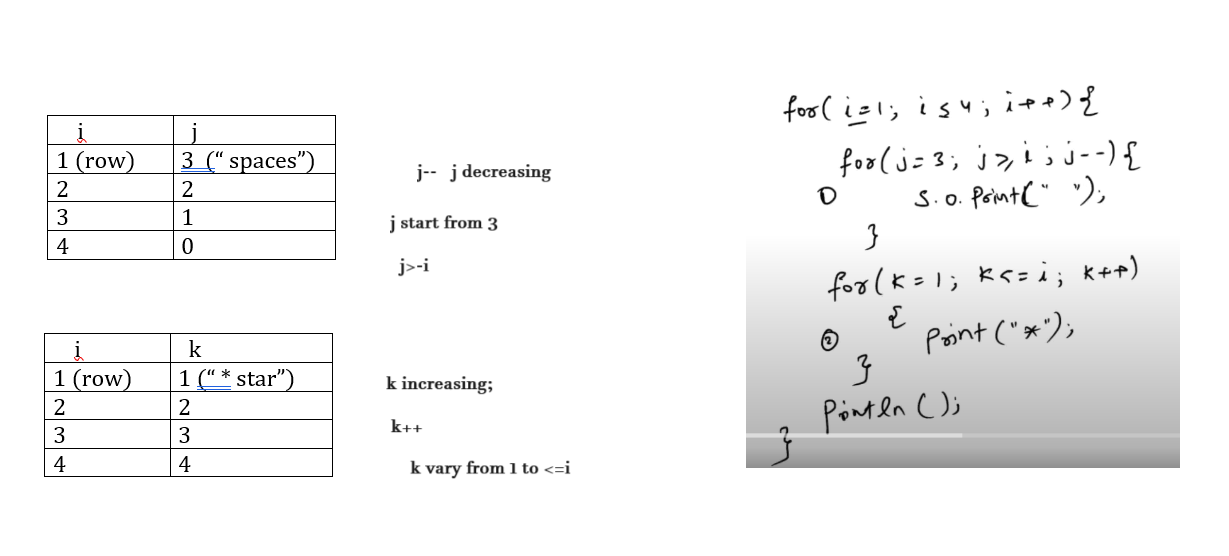 i j
1 (row) 3 (“ spaces”)
2 2
3 1
4 0
j-- j decreasing
j start from 3
j>-i
i k
1 (row) 1 (“ * star”)
2 2
3 3
4 4
k increasing;
k++
k vary from 1 to <=i
for( i=1; i ≤ 4; i++) {
for(j=3; j ≥ i; j--) {
① S.o. Print(" ");
}
for(k=1; k<=i; k++)
{
② Print("*");
}
Println();
}